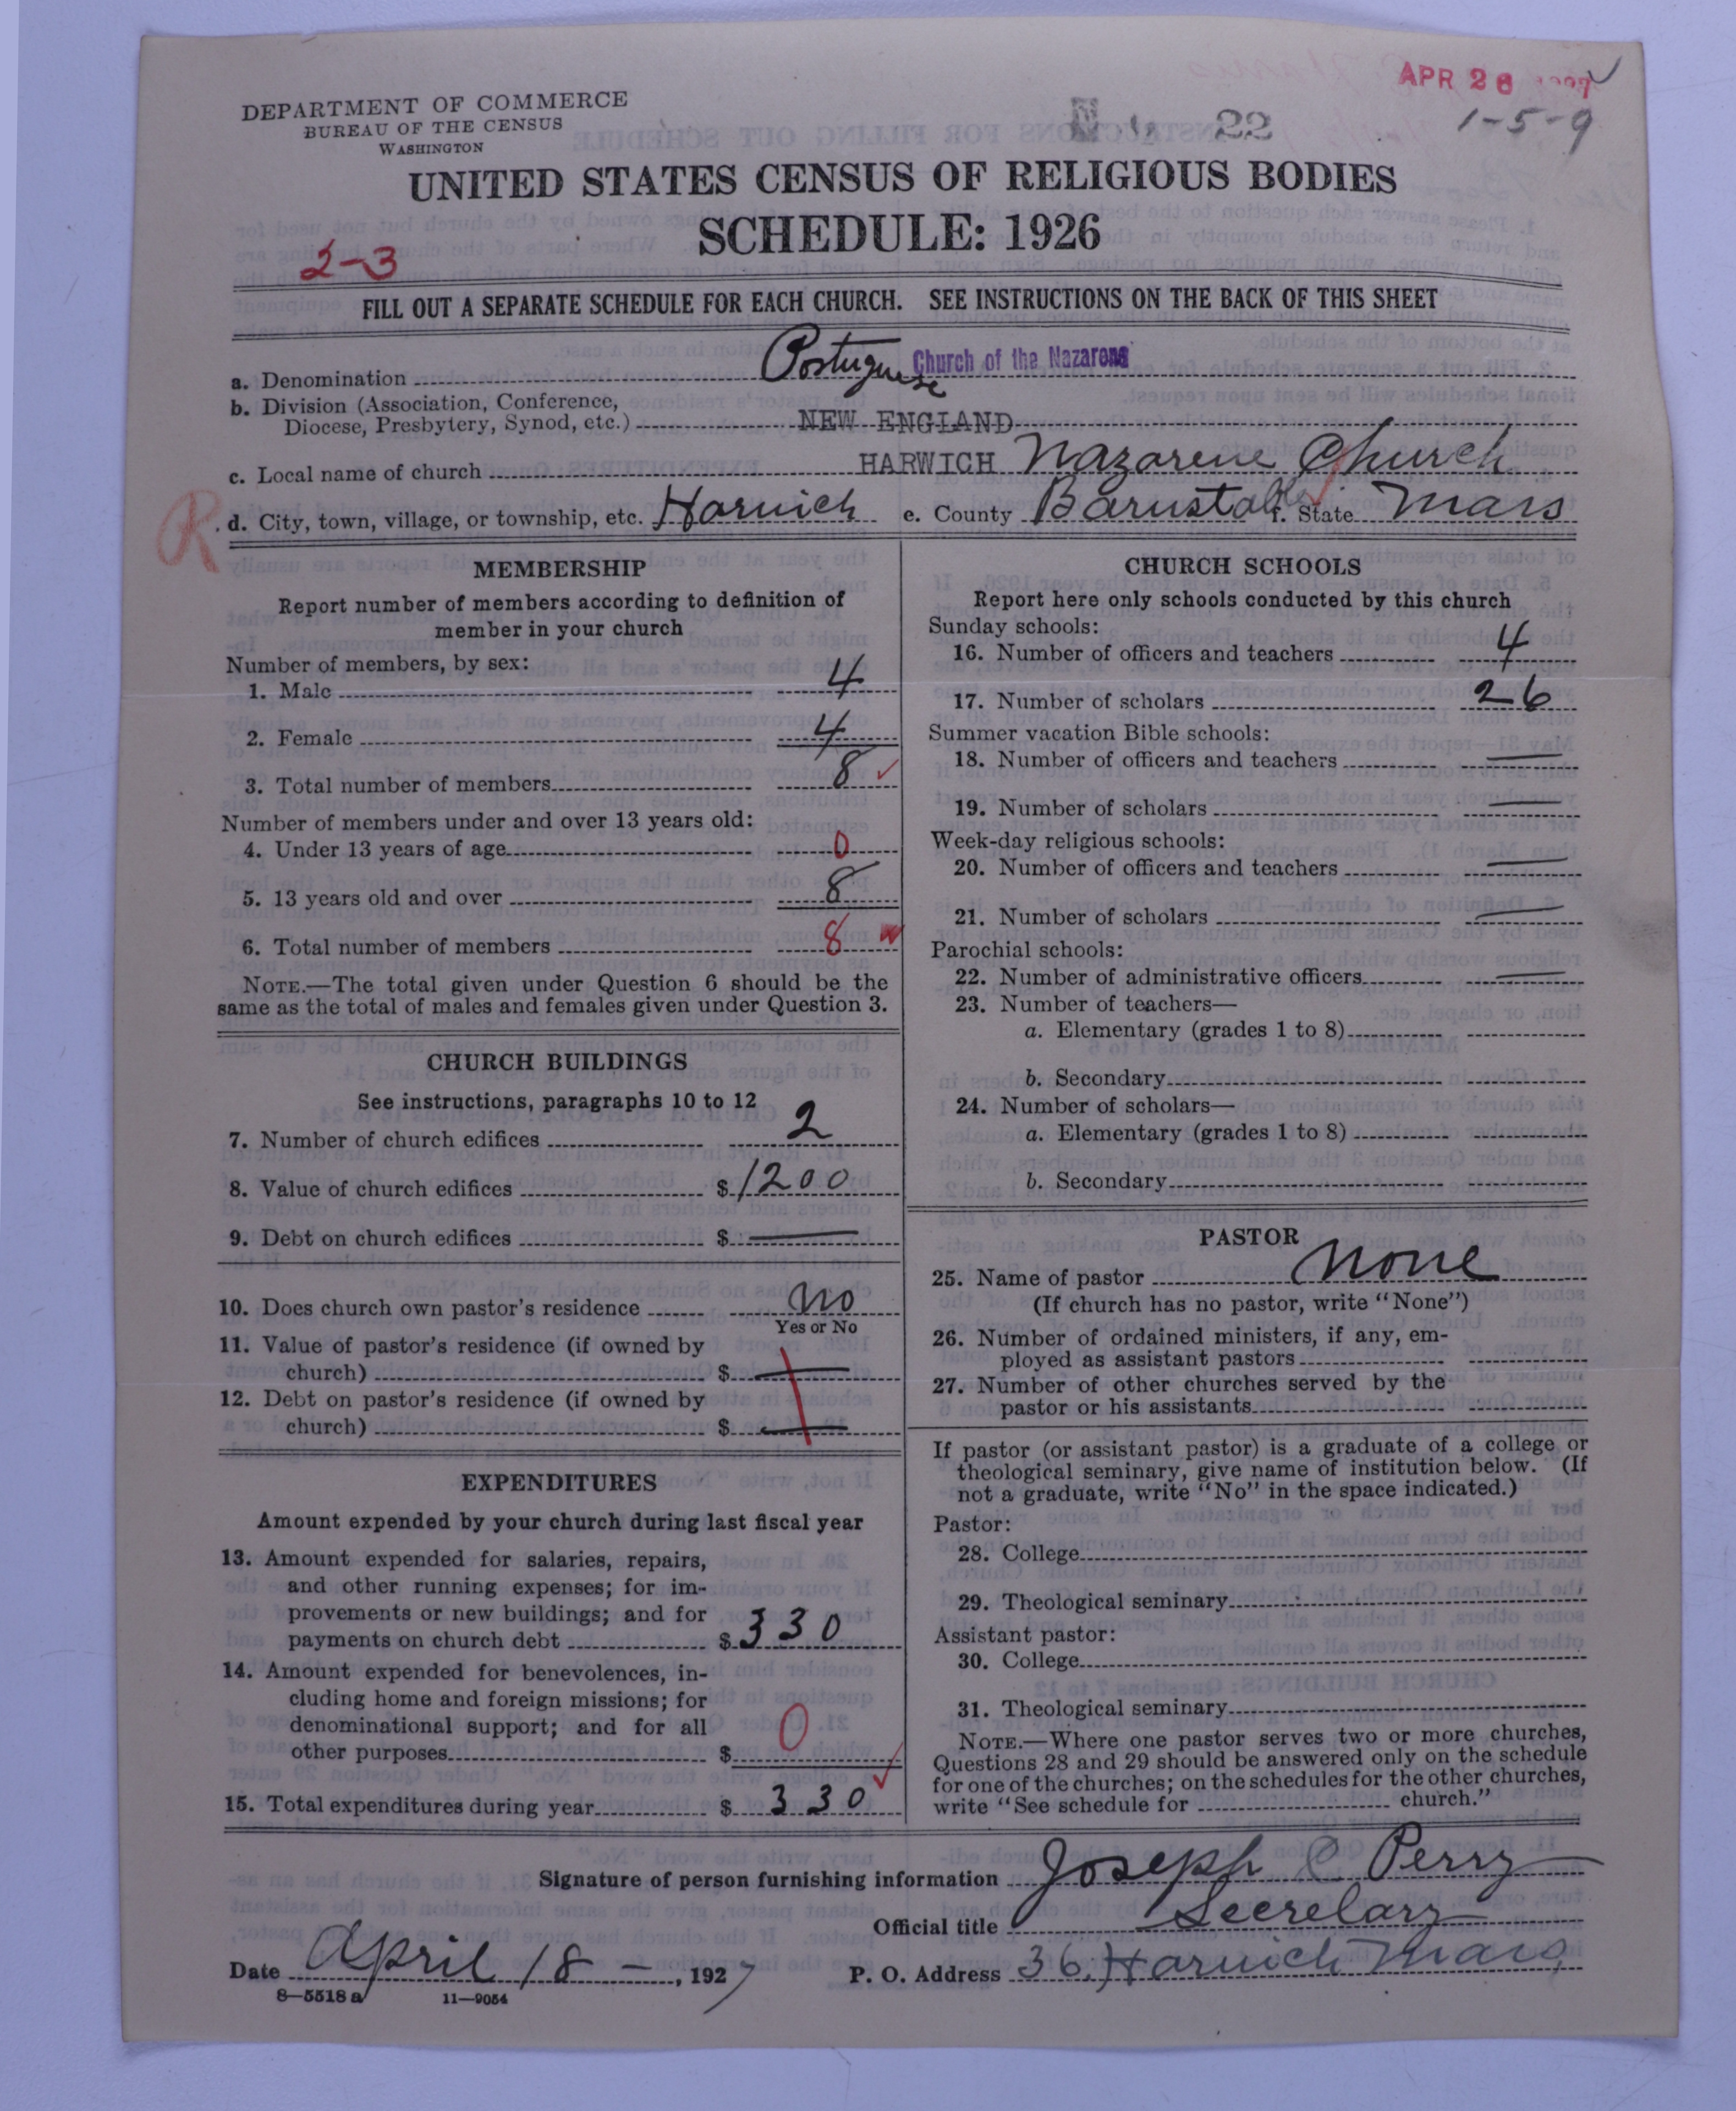 APR 26 1927
DEPARTMENT OF COMMERCE
BUREAU OF THE CENSUS
WASHINGTON
22
1-5-9
UNITED STATES CENSUS OF RELIGIOUS BODIES
SCHEDULE: 1926
2-3
FILL OUT A SEPARATE SCHEDULE FOR EACH CHURCH. SEE INSTRUCTIONS ON THE BACK OF THIS SHEET
a. Denomination Portuguese Church of the Nazarene
b. Division (Association, Conference,
Diocese, Presbytery, Synod, etc.) NEW ENGLAND
c. Local name of church HARWICH Nazarene Church
R
d. City, town, village, or township, etc. Harwich e. County Barnstable f. State Mass
MEMBERSHIP
Report number of members according to definition of
member in your church
Number of members, by sex:
1. Male 4
2. Female 4
3. Total number of members 8
Number of members under and over 13 years old:
4. Under 13 years of age 0
5. 13 years old and over 8
6. Total number of members 8
NOTE.—The total given under Question 6 should be the
same as the total of males and females given under Question 3.
CHURCH BUILDINGS
See instructions, paragraphs 10 to 12
7. Number of church edifices 2
8. Value of church edifices $1200
9. Debt on church edifices $ —
10. Does church own pastor's residence no
Yes or No
11. Value of pastor's residence (if owned by
church) $ —
12. Debt on pastor's residence (if owned by
church) $ —
EXPENDITURES
Amount expended by your church during last fiscal year
13. Amount expended for salaries, repairs,
and other running expenses; for im-
provements or new buildings; and for
payments on church debt $330
14. Amount expended for benevolences, in-
cluding home and foreign missions; for
denominational support; and for all
other purposes $ 0
15. Total expenditures during year $ 330
CHURCH SCHOOLS
Report here only schools conducted by this church
Sunday schools:
16. Number of officers and teachers 4
17. Number of scholars 26
Summer vacation Bible schools:
18. Number of officers and teachers —
19. Number of scholars —
Week-day religious schools:
20. Number of officers and teachers —
21. Number of scholars —
Parochial schools:
22. Number of administrative officers —
23. Number of teachers—
a. Elementary (grades 1 to 8)
b. Secondary
24. Number of scholars—
a. Elementary (grades 1 to 8)
b. Secondary
PASTOR
25. Name of pastor none
(If church has no pastor, write "None")
26. Number of ordained ministers, if any, em-
ployed as assistant pastors
27. Number of other churches served by the
pastor or his assistants
If pastor (or assistant pastor) is a graduate of a college or
theological seminary, give name of institution below. (If
not a graduate, write "No" in the space indicated.)
Pastor:
28. College
29. Theological seminary
Assistant pastor:
30. College
31. Theological seminary
NOTE.—Where one pastor serves two or more churches,
Questions 28 and 29 should be answered only on the schedule
for one of the churches; on the schedules for the other churches,
write "See schedule for church."
Signature of person furnishing information Joseph C Perry
Official title Secretary
Date April 18 —, 1927 P. O. Address 36, Harwich Mass
8—5518 a 11—9054